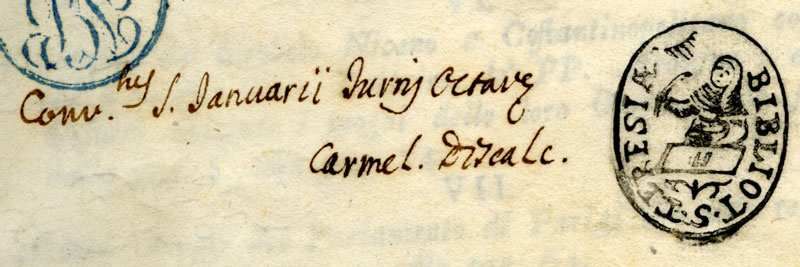 Conv.tus S. Januarii Turris Octavę
Carmel. Discalc.
BIBLIOT. S. TERESIÆ